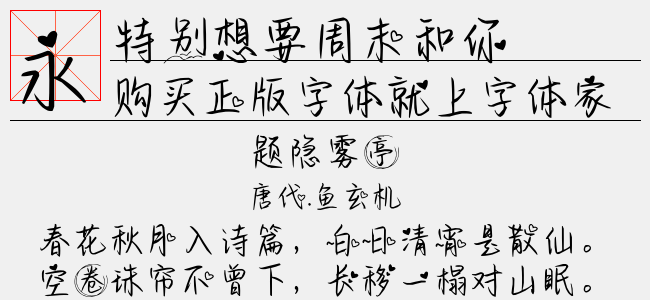 永
特别想要周末和你
购买正版字体就上字体家
题隐雾亭
唐代.鱼玄机
春花秋月入诗篇，白日清宵是散仙。
空卷珠帘不曾下，长移一榻对山眠。